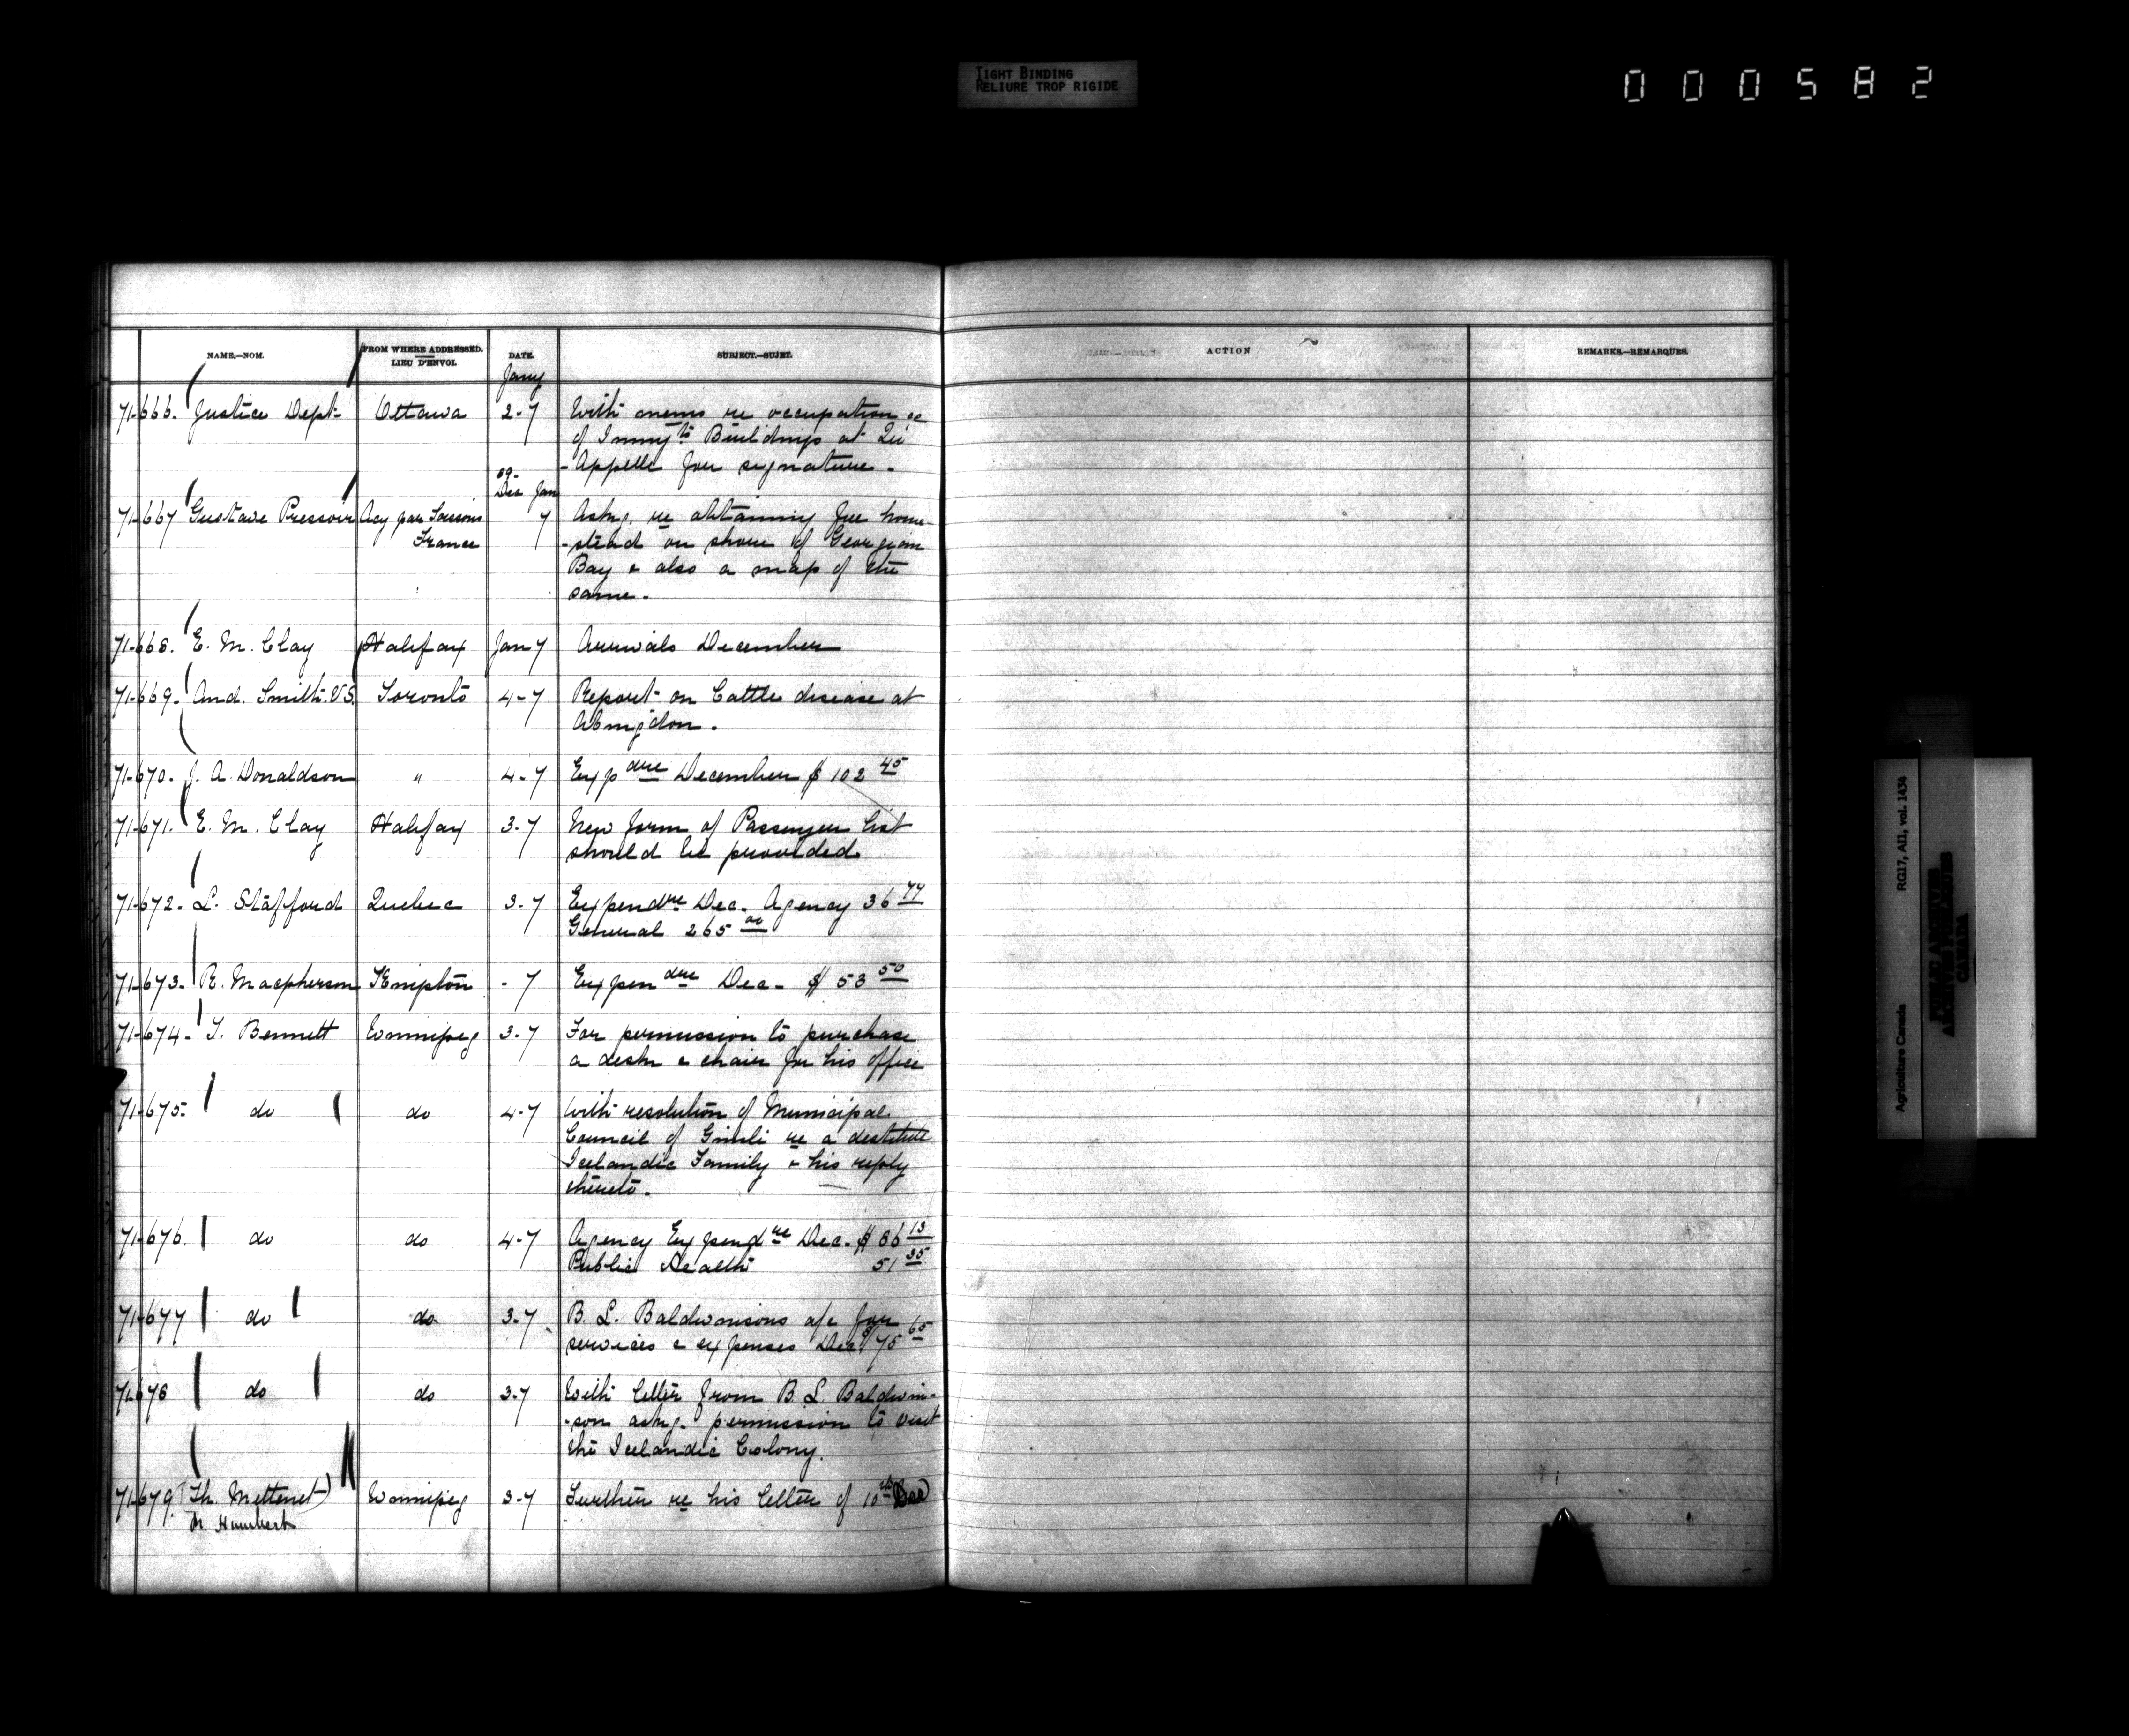 TIGHT BINDING
RELIURE TROP RIGIDE
000582
NAME.—NOM.
FROM WHERE ADDRESSED.
LIEU D'ENVOI.
DATE.
SUBJECT.—SUJET.
ACTION
REMARKS.—REMARQUES.
Jany
71-666. Justice Dept Ottawa 2-7 With memo re occupation &c
of Immigtn Buildings at Qu'
-Appelle for signature.
89-
Dec Jan
71-667 Gustave Pressoir Acy par Soissons 7 Askg. re obtaining free home-
France -stead on shore of Georgian
Bay & also a map of the
same.
71-668. E. M. Clay Halifax Jan 7 Arrivals December
71-669. And. Smith. V.S. Toronto 4-7 Report on Cattle disease at
Abingdon.
71-670. J. A. Donaldson " 4-7 Expdre December $102 45
71-671. E. M. Clay Halifax 3-7 New form of Passenger list
should be provided
71-672. L. Stafford Quebec 3-7 Expendre Dec. Agency 36 77
General 265 00
71-673. R. Macpherson Kingston - 7 Expendre Dec. $53 50
71-674. T. Bennett Winnipeg 3-7 For permission to purchase
a desk & chair for his office
71-675. do do 4-7 With resolution of Municipal
Council of Gimli re a destitute
Icelandic Family & his reply
thereto.
71-676. do do 4-7 Agency Expendre Dec. $86 13
Public Health 51 35
71-677 do do 3-7 B. L. Baldwinsons a/c for
services & expenses Dec $75 65
71-678 do do 3-7 With letter from B. L. Baldwin-
-son askg. permission to visit
the Icelandic Colony.
71-679. Th. Mettenet) Winnipeg 3-7 Further re his letter of 10th Dec
Humbert
Agriculture Canada RG17, AII, vol. 1434
CANADA